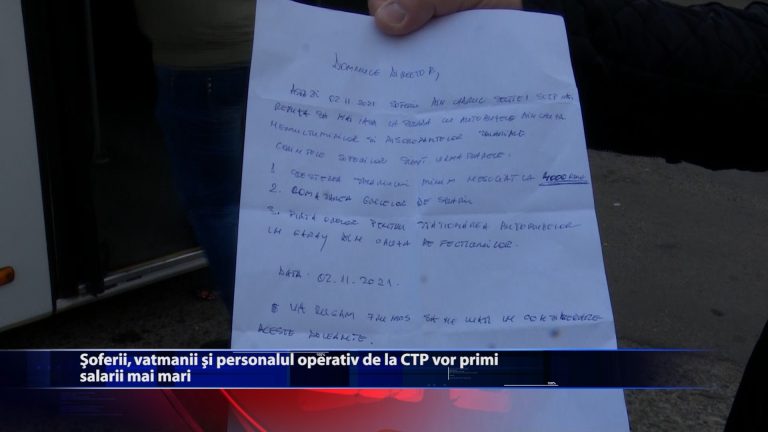 DOMNULE DIRECTOR,
ASTĂZI 02.11.2021 SOFERII DIN CADRUL SECTIEI SCTP
REFUZĂ SĂ MAI IASĂ LA CU AUTOBUZELE DIN CAUZA
NEMULTUMIRILOR SI DISCREPANTELOR SALARIALE
CERINTELE SOFERILOR SUNT URMATOARELE:
1. CRESTEREA SALARIULUI MINIM NEGOCIAT LA 4000
2. DE SALARII
3. PLATA ORELOR PENTRU STATIONAREA AUTOBUZELOR
IN GARAJ DIN CAUZA DEFECTIUNILOR.
DATA. 02.11.2021.
VĂ RUGAM FRUMOS SA NE LUATI IN CONSIDERARE
ACESTE DOLEANTE.
Șoferii, vatmanii și personalul operativ de la CTP vor primi
salarii mai mari